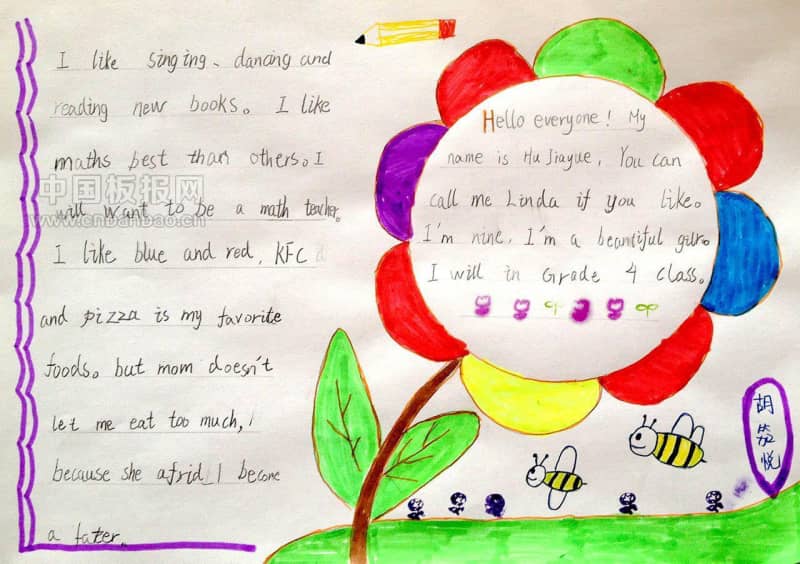 I like singing、dancing and
reading new books。 I like
maths best than others。I
will want to be a math teacher。
I like blue and red, KFC
and pizza is my favorite
foods。but mom doesn't
let me eat too much,
because she afrid I become
a fater。
Hello everyone! My
name is Hu Jiayue, You can
call me Linda if you like。
I'm nine, I'm a beautiful gilr。
I will in Grade 4 class。
胡
悦
中国板报网
www.cnbanbao.cn